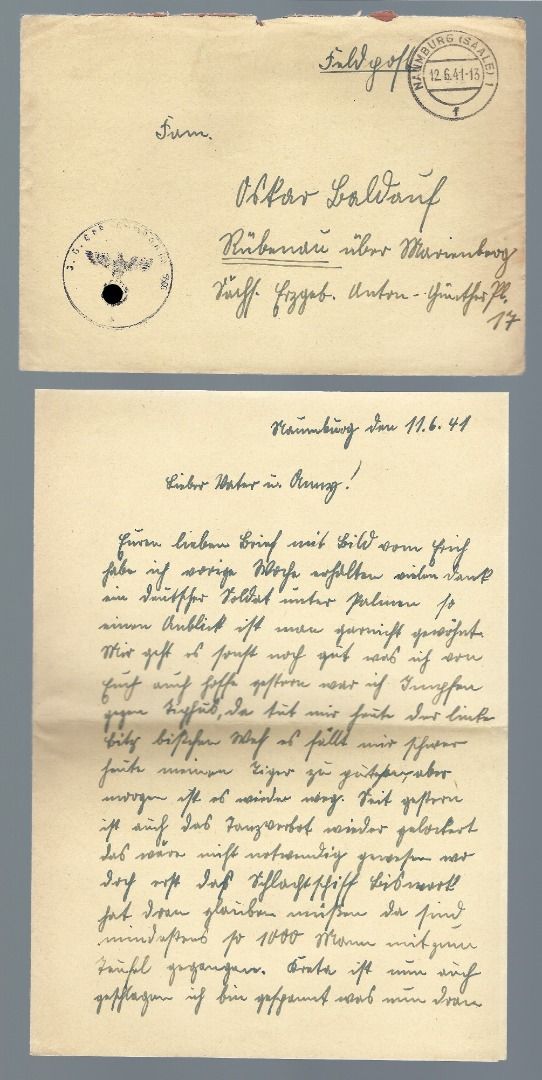 Feldpost
NAUMBURG (SAALE) 1
12.6.41-13
f
Fam.
Oskar Baldauf
Rübenau über Marienberg
Sächs. Erzgeb. Anton-Günther Pl.
17
Naumburg den 11.6.41
Lieber Vater u. Anny!
Euren lieben Brief mit Bild vom Erich
habe ich vorige Woche erhalten vielen Dank
ein deutscher Soldat unter Palmen so
einen Anblick ist man garnicht gewöhnt.
Mir geht es sonst noch gut was ich von
Euch auch hoffe gestern war ich Impfen
gegen Typhus, da tut mir heute der linke
bischen Weh es fällt mir schwer
heute meinen zu aber
morgen ist es wieder weg. Seit gestern
ist auch das Tanzverbot wieder gelockert
das wäre nicht notwendig gewesen wo
doch erst das Schlachtschiff Bismark
hat dran glauben müßen da sind
mindestens so 1000 Mann mit zum
Teufel gegangen. Kreta ist nun auch
geschlagen ich bin gespannt was nun dran